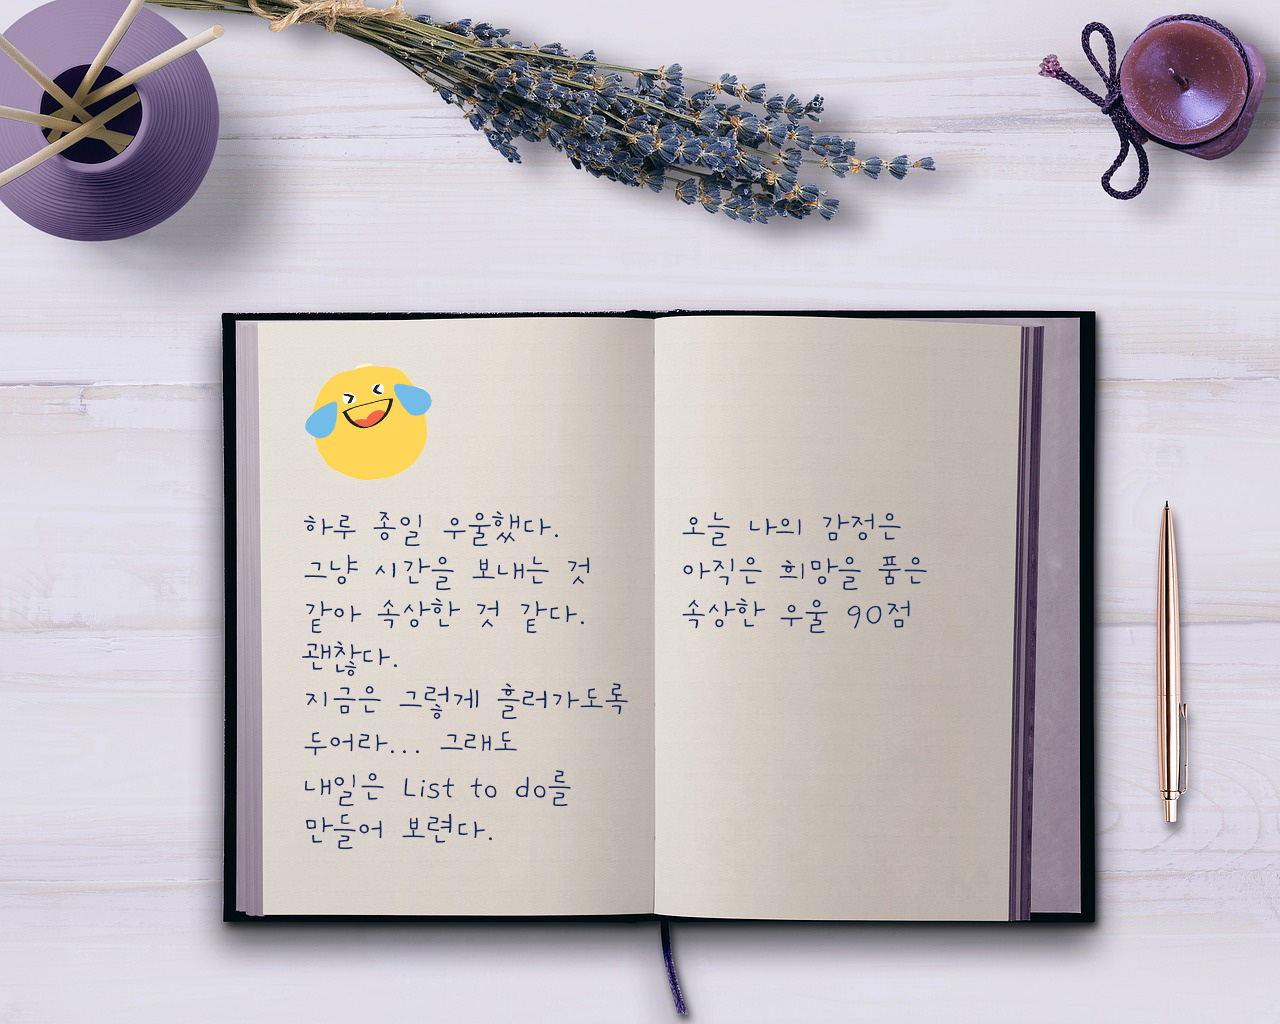 하루 종일 우울했다.
그냥 시간을 보내는 것
같아 속상한 것 같다.
괜찮다.
지금은 그렇게 흘러가도록
두어라... 그래도
내일은 List to do를
만들어 보련다.
오늘 나의 감정은
아직은 희망을 품은
속상한 우울 90점